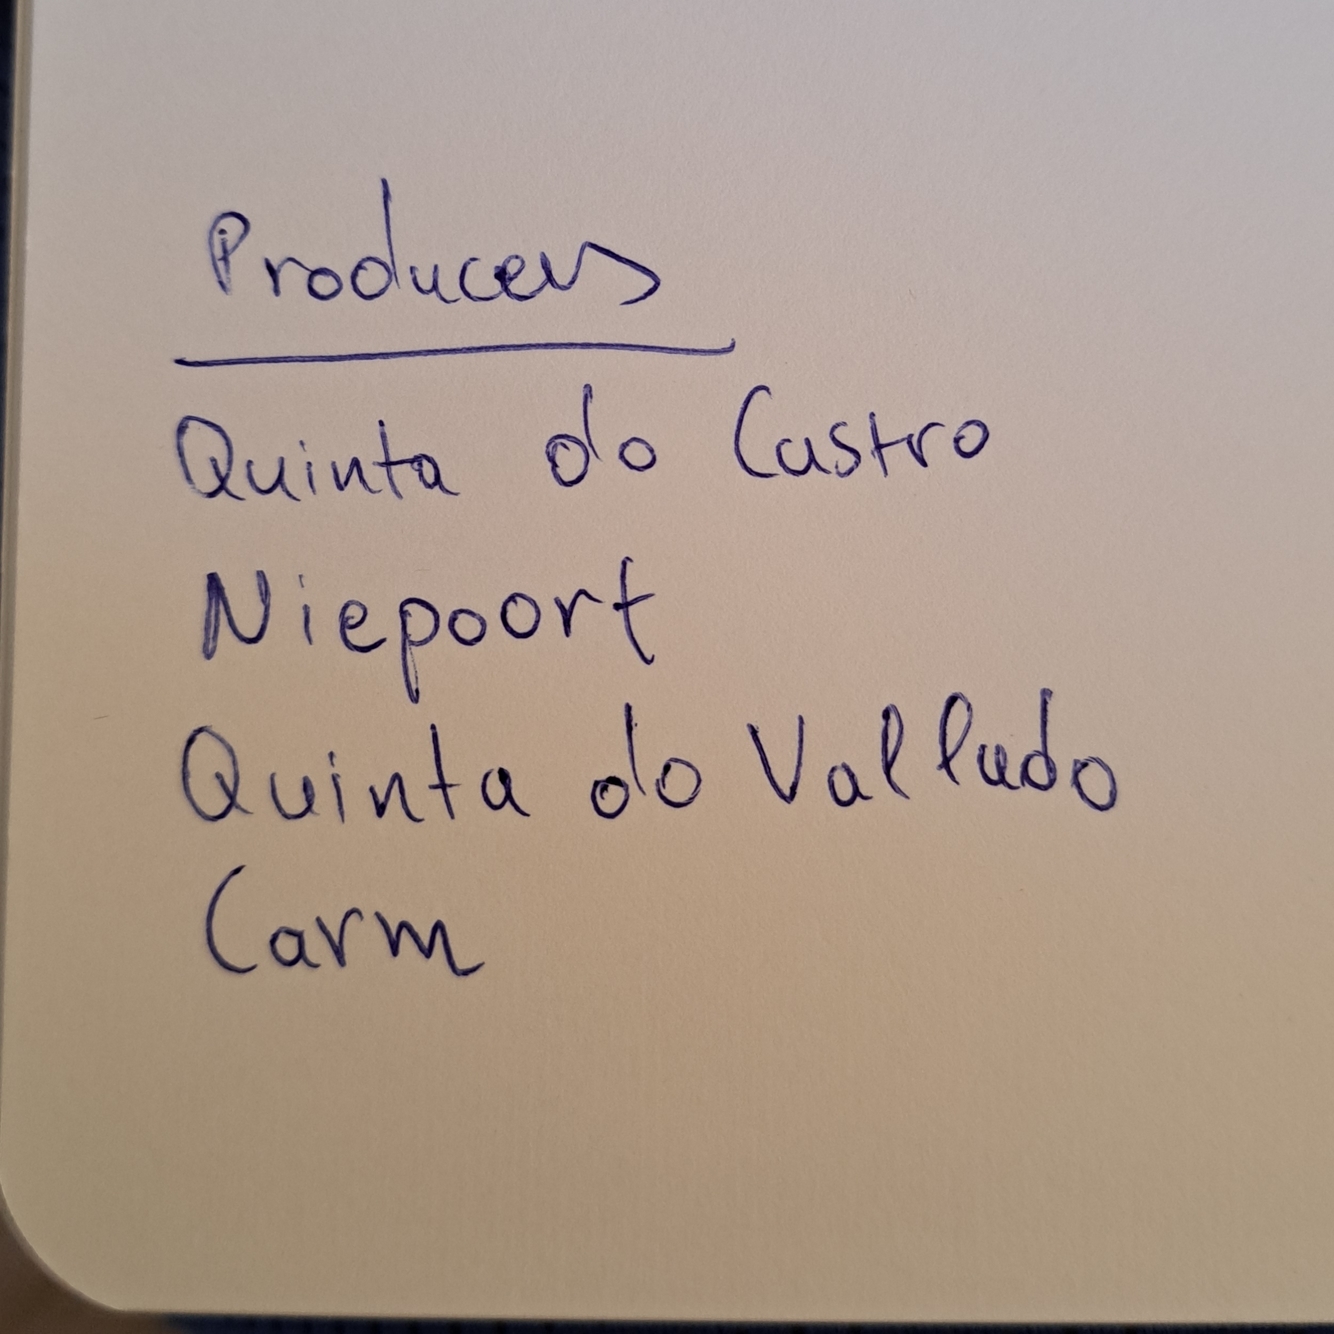 Producers
Quinta do Castro
Niepoort
Quinta do Vallado
Carm